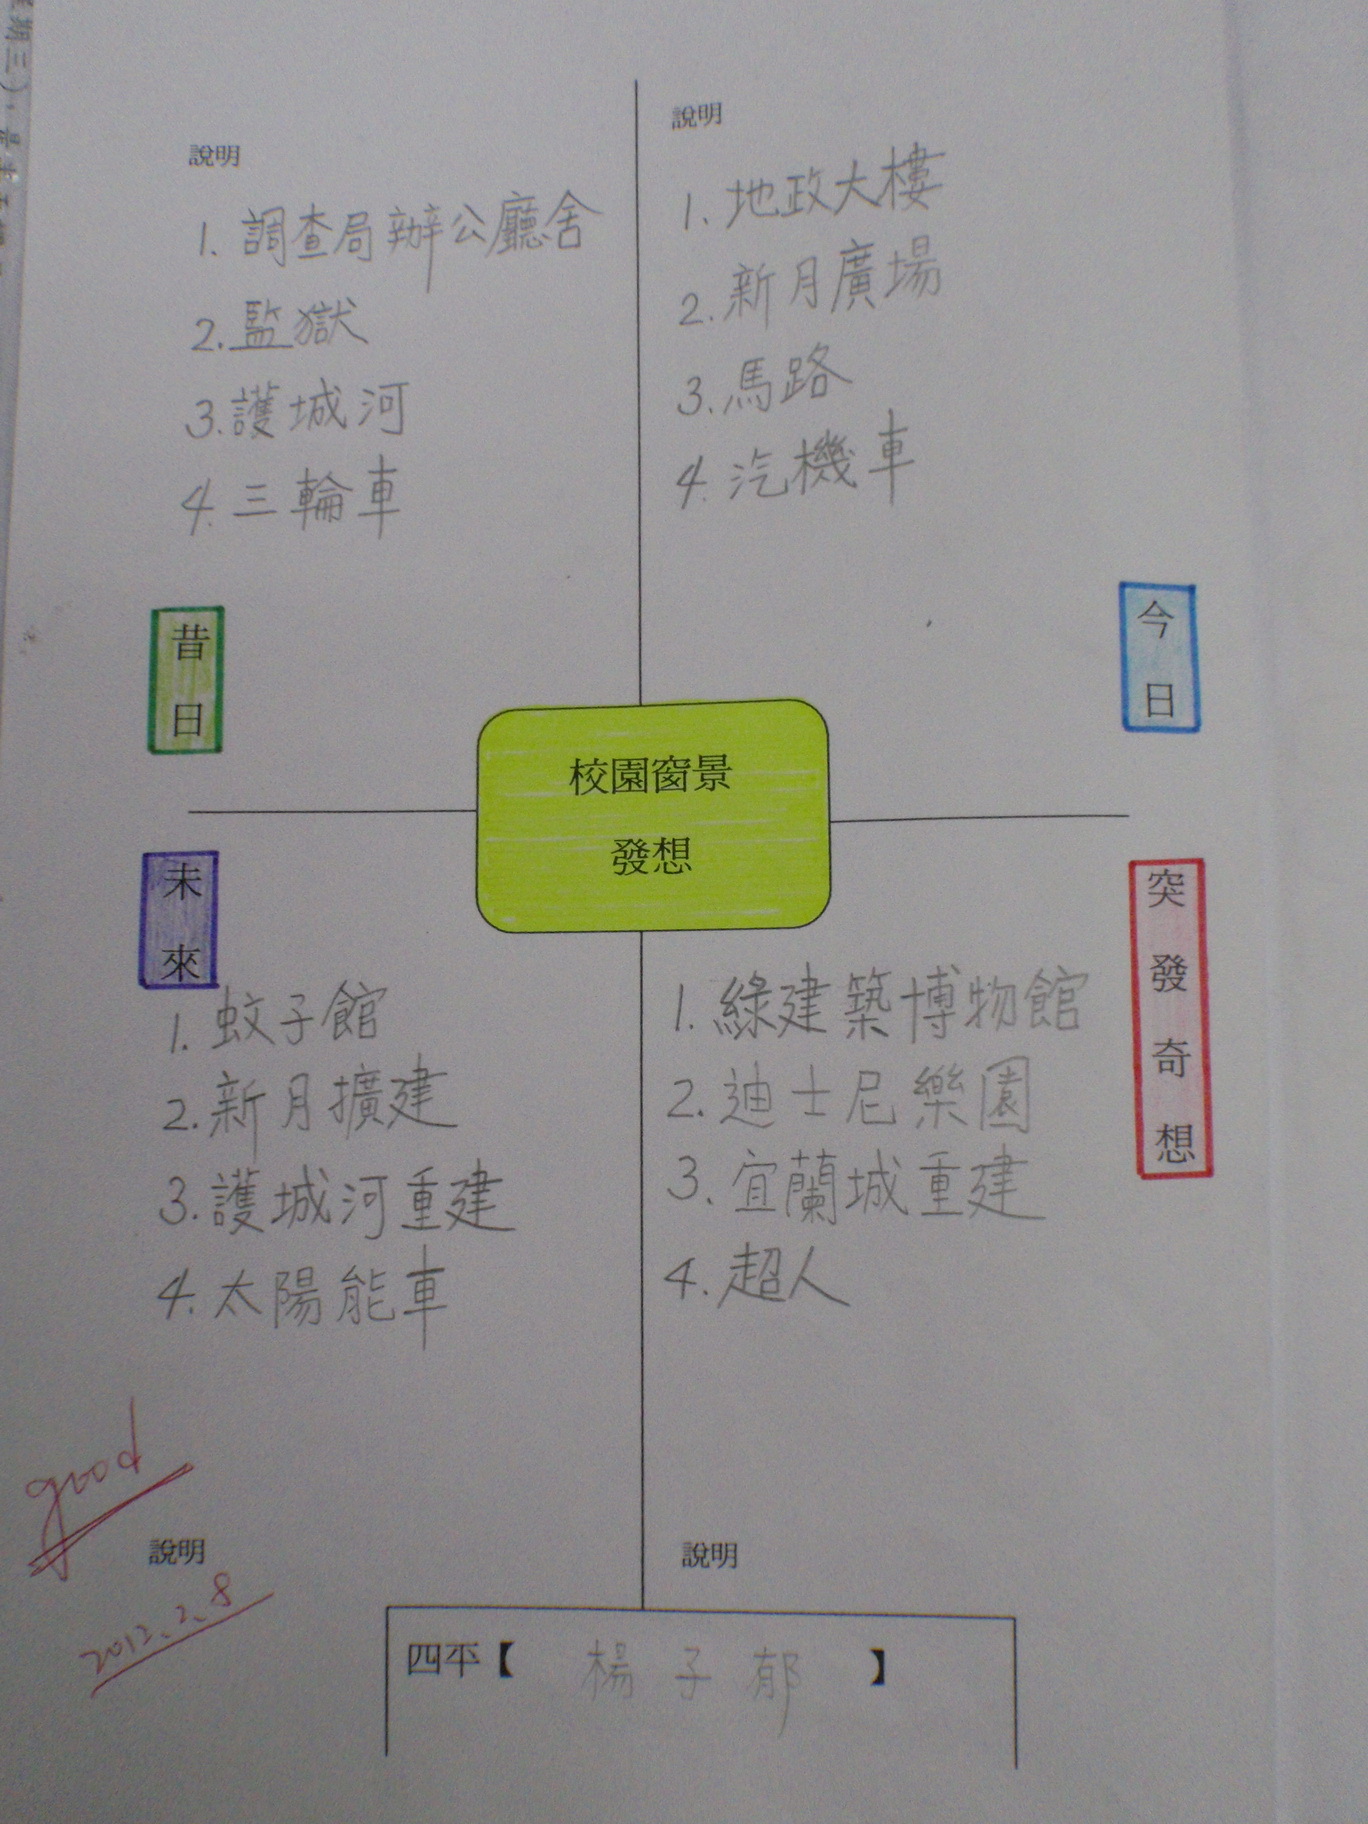 說明
1. 調查局辦公廳舍
2. 監獄
3. 護城河
4. 三輪車
昔日
說明
1. 地政大樓
2. 新月廣場
3. 馬路
4. 汽機車
今日
校園窗景
發想
未來
1. 蚊子館
2. 新月擴建
3. 護城河重建
4. 太陽能車
說明
突發奇想
1. 綠建築博物館
2. 迪士尼樂園
3. 宜蘭城重建
4. 超人
說明
good
2012.2.8
四平【 楊子郁 】